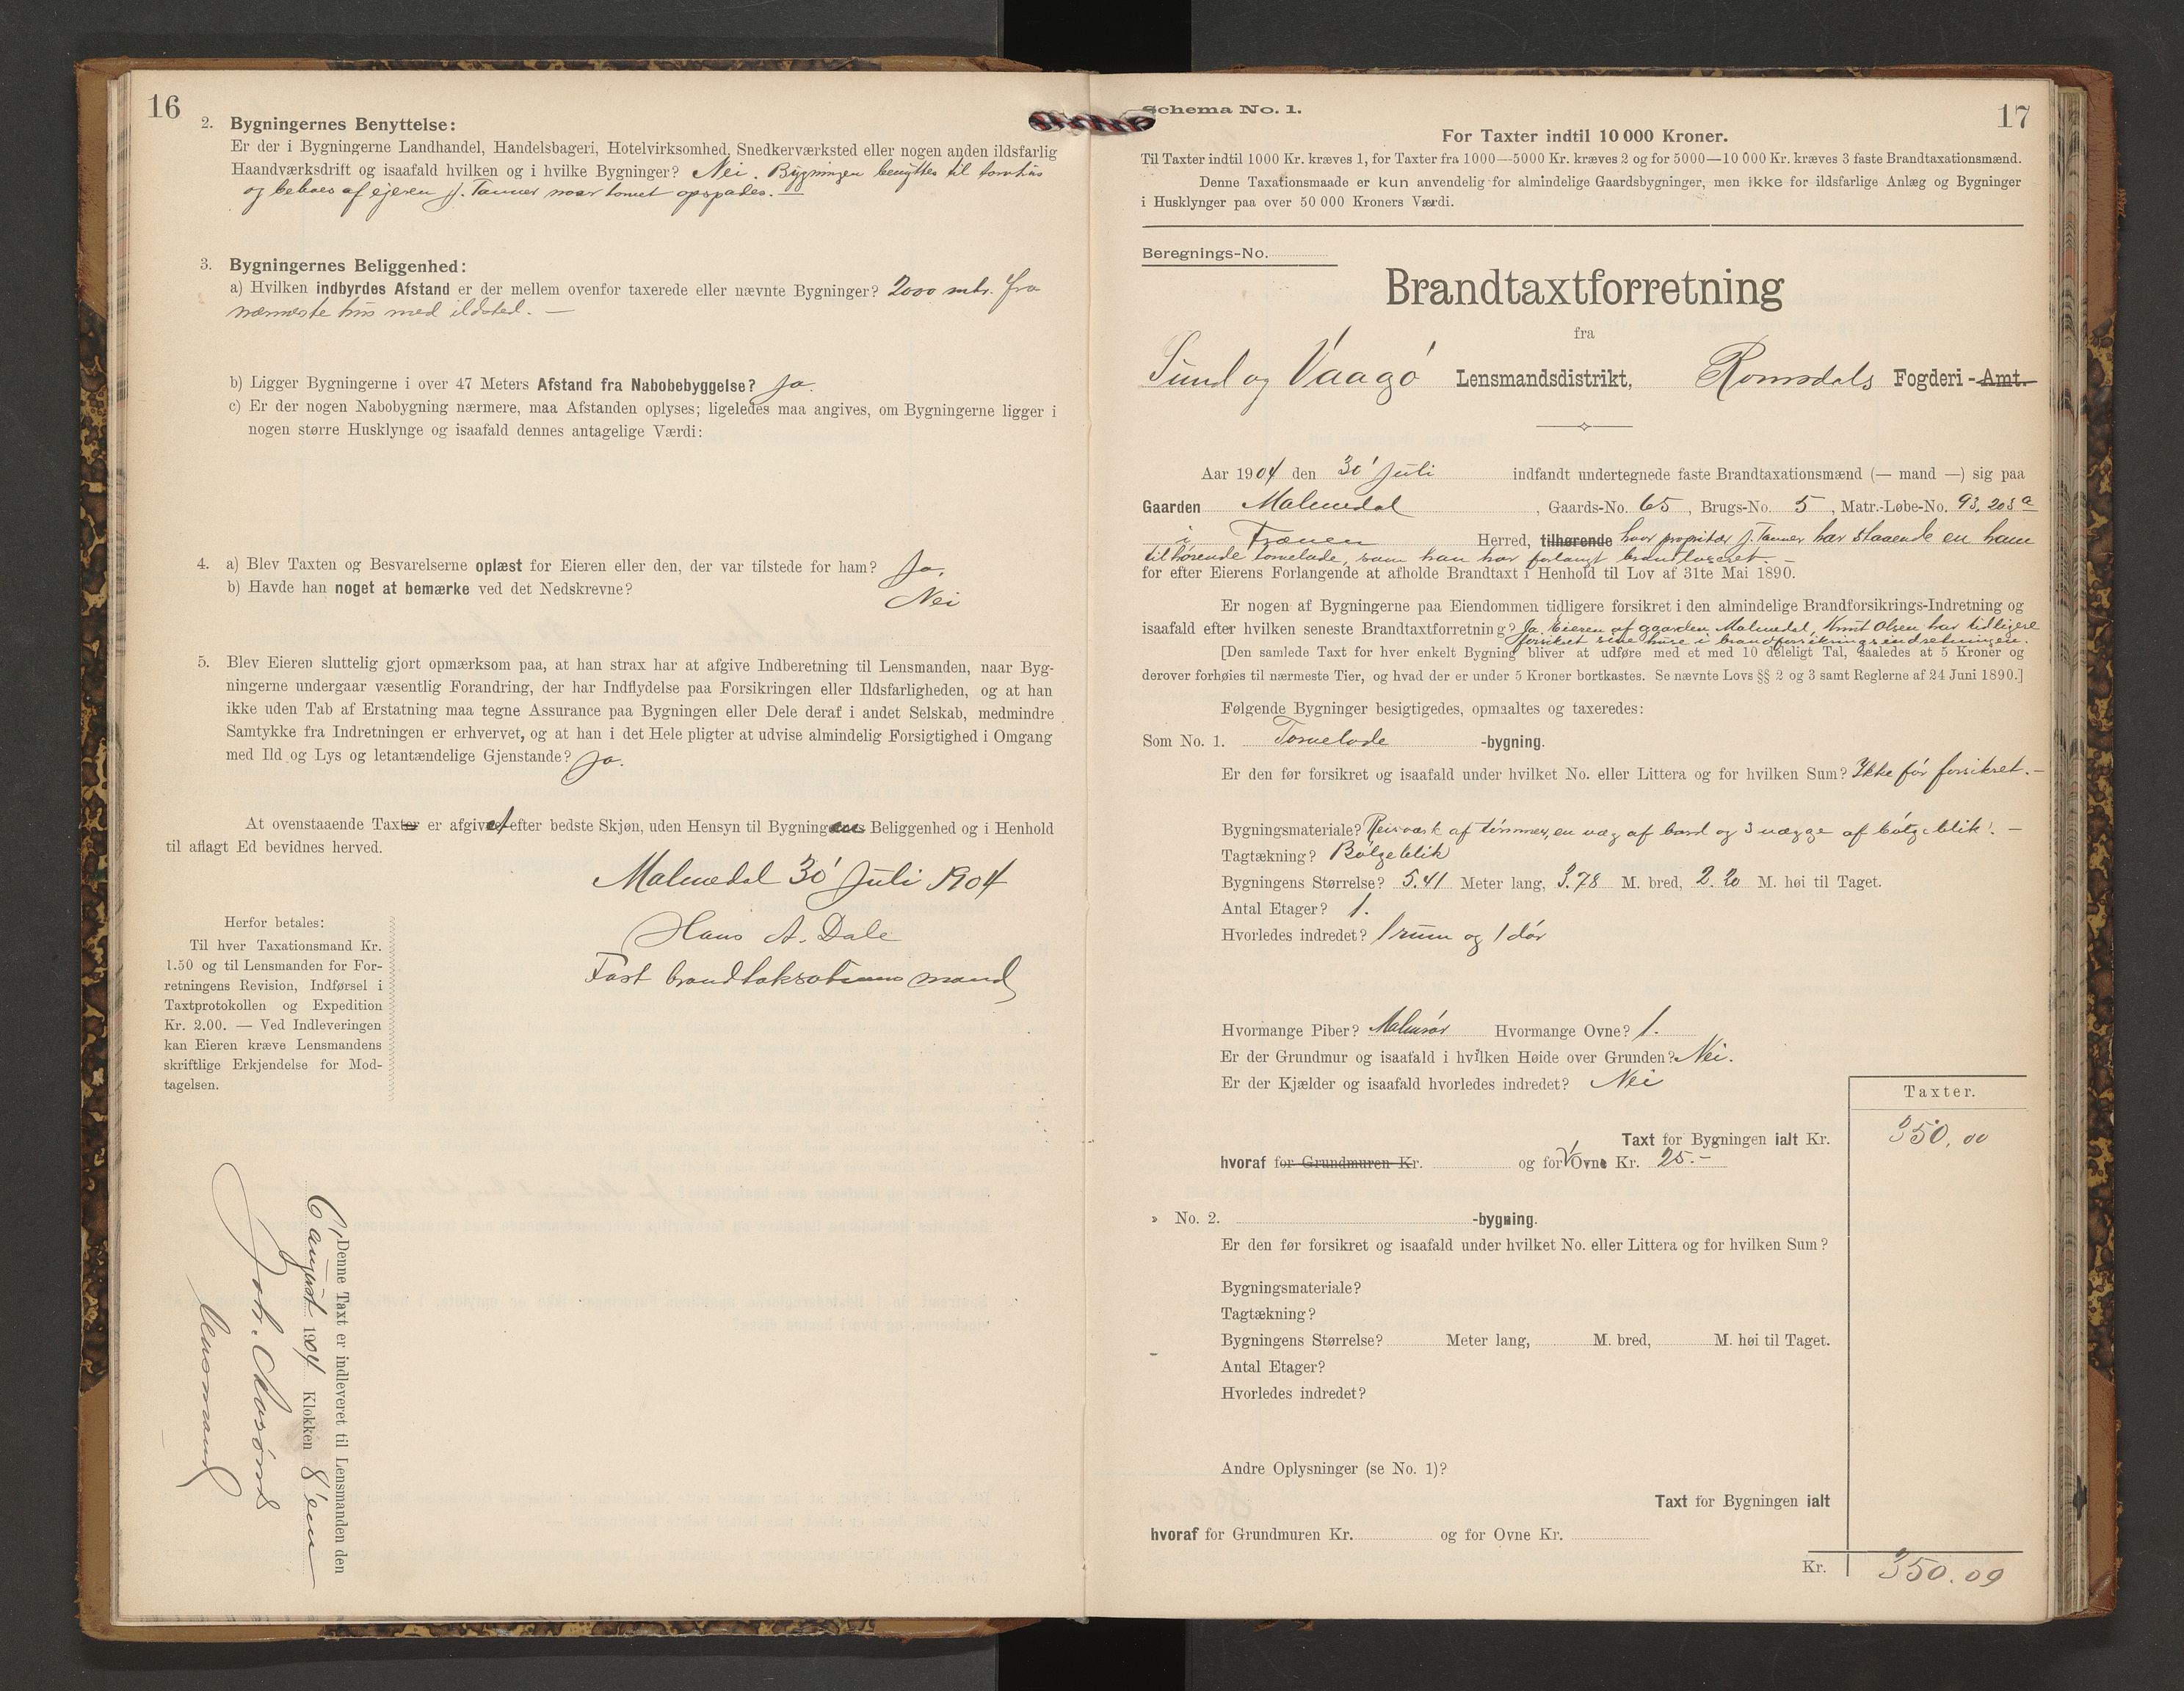 16
2. Bygningernes Benyttelse:
Er der i Bygningerne Landhandel, Handelsbageri, Hotelvirksomhed, Snedkerværksted eller nogen anden ildsfarlig
Haandværksdrift og isaafald hvilken og i hvilke Bygninger? Nei. Bygningen benyttes til tornhus
og beboes af ejeren J. Tanner naar tomet opspades. —
3. Bygningernes Beliggenhed:
a) Hvilken indbyrdes Afstand er der mellem ovenfor taxerede eller nævnte Bygninger? 2000 mtr. fra
nærmeste hus med ildsted. —
b) Ligger Bygningerne i over 47 Meters Afstand fra Nabobebyggelse? Ja.
c) Er der nogen Nabobygning nærmere, maa Afstanden oplyses; ligeledes maa angives, om Bygningerne ligger i
nogen større Husklynge og isaafald dennes antagelige Værdi:
4. a) Blev Taxten og Besvarelserne oplæst for Eieren eller den, der var tilstede for ham? Ja.
b) Havde han noget at bemærke ved det Nedskrevne? Nei
5. Blev Eieren sluttelig gjort opmærksom paa, at han strax har at afgive Indberetning til Lensmanden, naar Byg-
ningerne undergaar væsentlig Forandring, der har Indflydelse paa Forsikringen eller Ildsfarligheden, og at han
ikke uden Tab af Erstatning maa tegne Assurance paa Bygningen eller Dele deraf i andet Selskab, medmindre
Samtykke fra Indretningen er erhvervet, og at han i det Hele pligter at udvise almindelig Forsigtighed i Omgang
med Ild og Lys og letantændelige Gjenstande? Ja.
At ovenstaaende Taxter er afgivet efter bedste Skjøn, uden Hensyn til Bygningens Beliggenhed og i Henhold
til aflagt Ed bevidnes herved.
Malmedal 30' Juli 1904
Hans A. Dale
Fast brandtaksationsmand
Herfor betales:
Til hver Taxationsmand Kr.
1.50 og til Lensmanden for For-
retningens Revision, Indførsel i
Taxtprotokollen og Expedition
Kr. 2.00. — Ved Indleveringen
kan Eieren kræve Lensmandens
skriftlige Erkjendelse for Mod-
tagelsen.
Denne Taxt er indleveret til Lensmanden den
6' august 1904 Klokken 8 em
Joh.
lensmand
17
Schema No. 1.
For Taxter indtil 10 000 Kroner.
Til Taxter indtil 1000 Kr. kræves 1, for Taxter fra 1000—5000 Kr. kræves 2 og for 5000—10 000 Kr. kræves 3 faste Brandtaxationsmænd.
Denne Taxationsmaade er kun anvendelig for almindelige Gaardsbygninger, men ikke for ildsfarlige Anlæg og Bygninger
i Husklynger paa over 50 000 Kroners Værdi.
Beregnings-No.
Brandtaxtforretning
fra
Sund og Vaagø Lensmandsdistrikt, Romsdals Fogderi - Amt.
Aar 1904 den 30' Juli indfandt undertegnede faste Brandtaxationsmænd (— mand —) sig paa
Gaarden Malmedal, Gaards-No. 65, Brugs-No. 5, Matr.-Løbe-No. 93, 203 a
i Frænen Herred, tilhørende hvor proprietær J. Tanner har staaende en ham
tilhørende tornelade, som han har forlangt brandtaxeret. —
for efter Eierens Forlangende at afholde Brandtaxt i Henhold til Lov af 31te Mai 1890.
Er nogen af Bygningerne paa Eiendommen tidligere forsikret i den almindelige Brandforsikrings-Indretning og
isaafald efter hvilken seneste Brandtaxtforretning? Ja. Eieren af gaarden Malmedal, Knut Olsen har tidligere
forsikret sine huse i brandforsikringsindretningen.
[Den samlede Taxt for hver enkelt Bygning bliver at udføre med et med 10 deleligt Tal, saaledes at 5 Kroner og
derover forhøies til nærmeste Tier, og hvad der er under 5 Kroner bortkastes. Se nævnte Lovs §§ 2 og 3 samt Reglerne af 24 Juni 1890.]
Følgende Bygninger besigtigedes, opmaaltes og taxeredes:
Som No. 1. Tornelade -bygning.
Er den før forsikret og isaafald under hvilket No. eller Littera og for hvilken Sum? Ikke før forsikret. —
Bygningsmateriale? Reisværk af tømmer, en væg af bord og 3 vægge af bølgeblik. —
Tagtækning? Bølgeblik
Bygningens Størrelse? 5.41 Meter lang, 3.78 M. bred, 2.20 M. høi til Taget.
Antal Etager? 1.
Hvorledes indredet? 1 rum og 1 dør
Hvormange Piber? Malmrør Hvormange Ovne? 1.
Er der Grundmur og isaafald i hvilken Høide over Grunden? Nei.
Er der Kjælder og isaafald hvorledes indredet? Nei
Taxter.
Taxt for Bygningen ialt Kr. 350.00
hvoraf for Grundmuren Kr. og for 1 Ovne Kr. 25.—
» No. 2. -bygning.
Er den før forsikret og isaafald under hvilket No. eller Littera og for hvilken Sum?
Bygningsmateriale?
Tagtækning?
Bygningens Størrelse? Meter lang, M. bred, M. høi til Taget.
Antal Etager?
Hvorledes indredet?
Andre Oplysninger (se No. 1)?
Taxt for Bygningen ialt
hvoraf for Grundmuren Kr. og for Ovne Kr.
Kr. 350.00